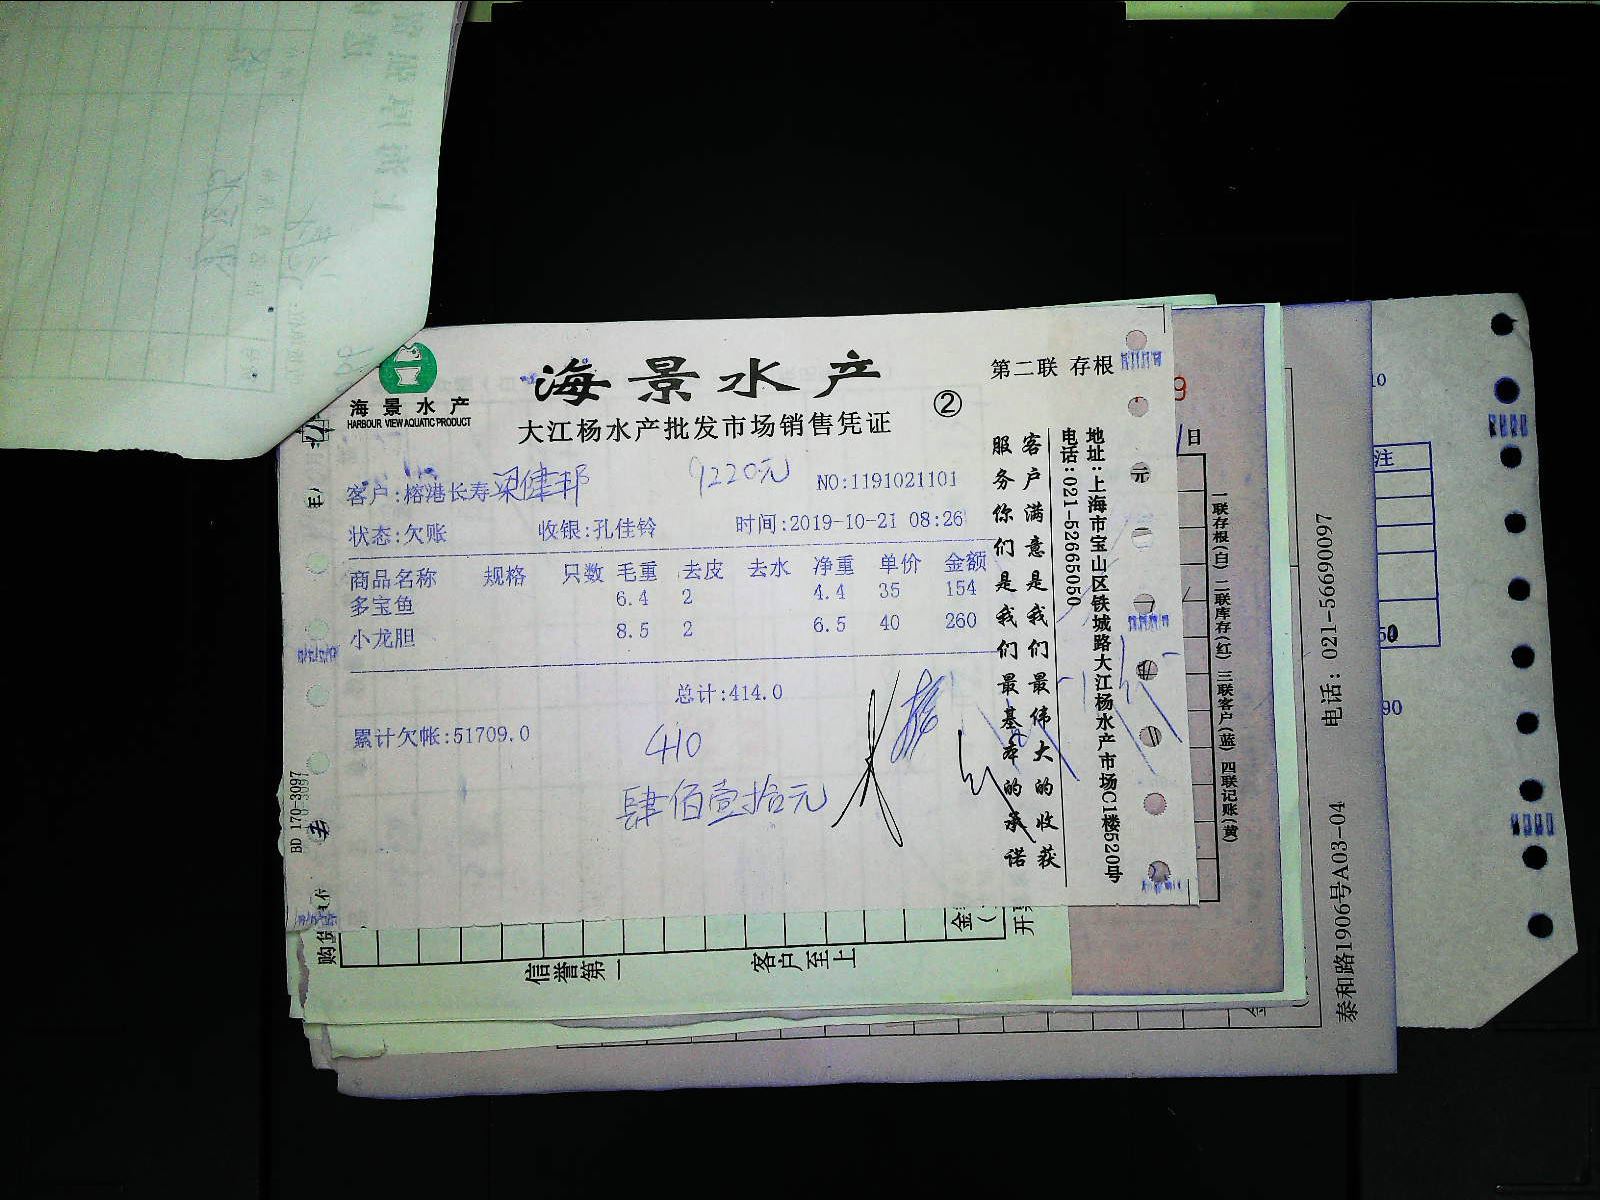 海景水产
HARBOUR VIEW AQUATIC PRODUCT
海景水产
大江杨水产批发市场销售凭证
②
第二联 存根
客户:榕港长寿 梁健邦
9220元
NO:1191021101
状态:欠账 收银:孔佳铃 时间:2019-10-21 08:26
商品名称 规格 只数 毛重 去皮 去水 净重 单价 金额
多宝鱼 6.4 2 4.4 35 154
小龙胆 8.5 2 6.5 40 260
总计:414.0
累计欠帐:51709.0
410
肆佰壹拾元
客户满意是我们最伟大的收获
服务你们是我们最基本的承诺
地址:上海市宝山区铁城路大江杨水产市场C1楼520号
电话:021-52665050
BD 170-3097
9
日
元
一联存根(白) 二联库存(红) 三联客户(蓝) 四联记账(黄)
购货
信誉第一
客户至上
金
开票
泰和路1906号A03-04
电话: 021-56690097
注
10
50
90